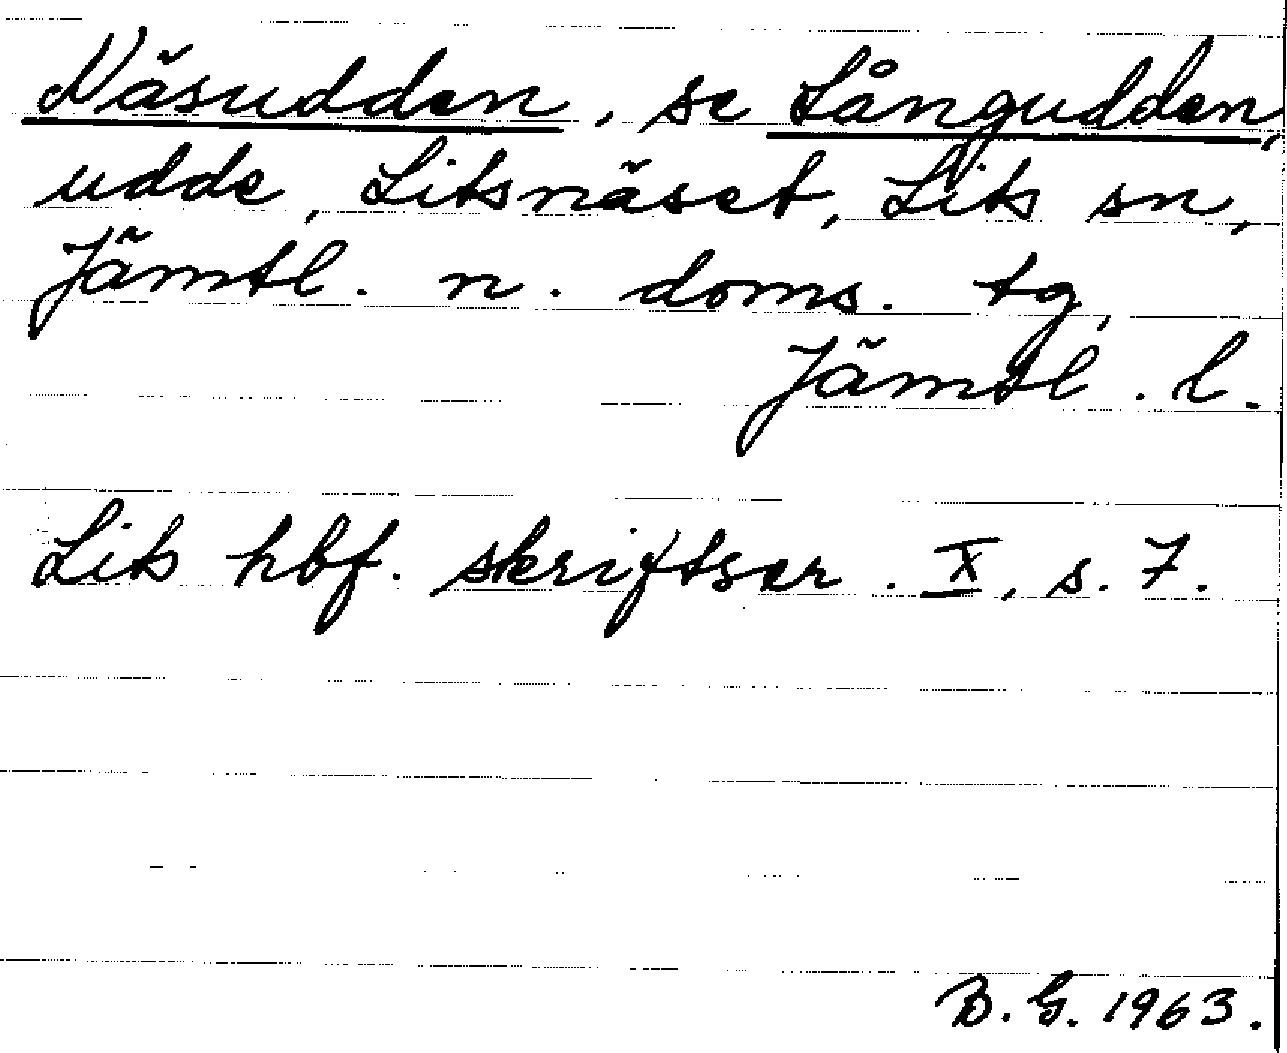 Näsudden, se Långudden,
udde, Litsnäset, Lits sn,
Jämtl. n. doms. tg,
Jämtl. l.
Lits hbf. skriftser. X, s. 7.
B. G. 1963.